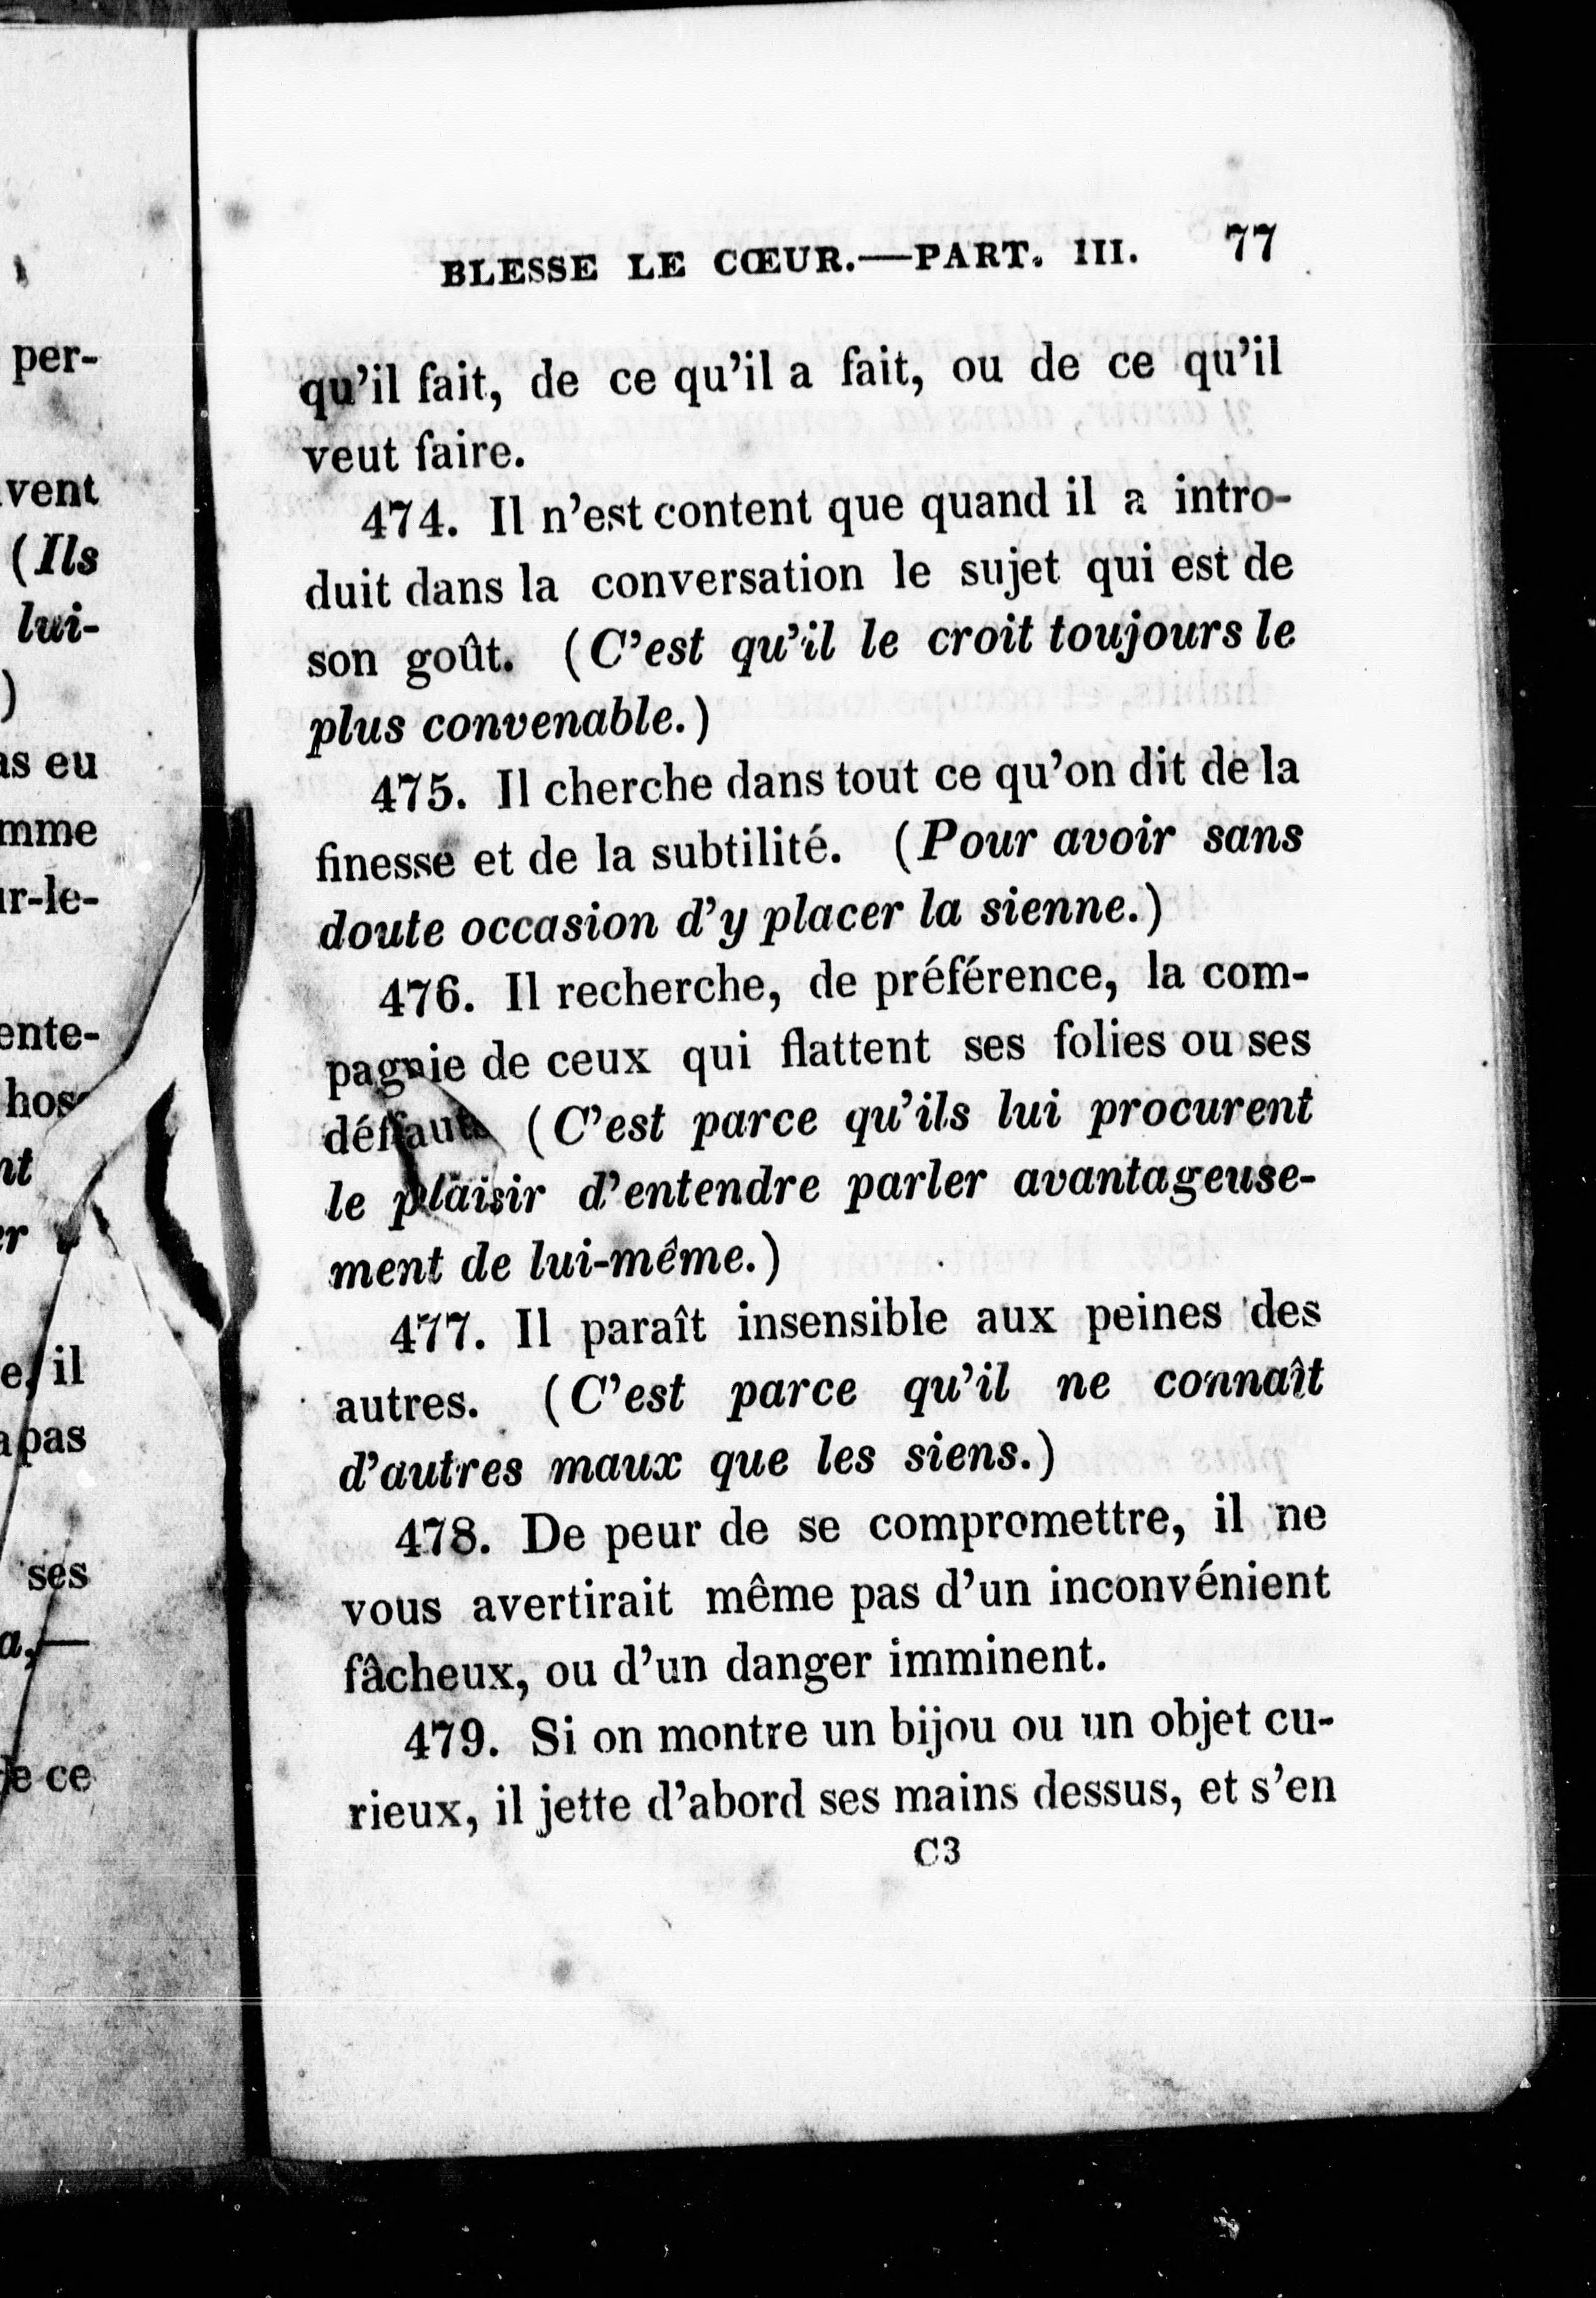 BLESSE LE CŒUR.—PART. III. 77
qu’il fait, de ce qu’il a fait, ou de ce qu’il
veut faire.
474. Il n’est content que quand il a intro-
duit dans la conversation le sujet qui est de
son goût. (C’est qu’il le croit toujours le
plus convenable.)
475. Il cherche dans tout ce qu’on dit de la
finesse et de la subtilité. (Pour avoir sans
doute occasion d’y placer la sienne.)
476. Il recherche, de préférence, la com-
pagnie de ceux qui flattent ses folies ou ses
défauts (C’est parce qu’ils lui procurent
le plaisir d’entendre parler avantageuse-
ment de lui-même.)
477. Il paraît insensible aux peines des
autres. (C’est parce qu’il ne connaît
d’autres maux que les siens.)
478. De peur de se compromettre, il ne
vous avertirait même pas d’un inconvénient
fâcheux, ou d’un danger imminent.
479. Si on montre un bijou ou un objet cu-
rieux, il jette d’abord ses mains dessus, et s’en
C3